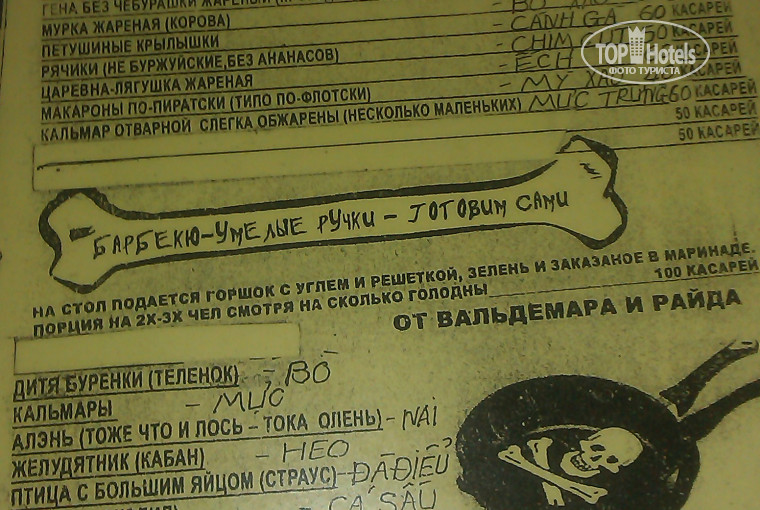 ГЕНА БЕЗ ЧЕБУРАШКИ ЖАРЕНЫЙ
МУРКА ЖАРЕНАЯ (КОРОВА) - BÒ XÀO
ПЕТУШИНЫЕ КРЫЛЫШКИ - CANH GA 60 КАСАРЕЙ
РЯЧИКИ (НЕ БУРЖУЙСКИЕ, БЕЗ АНАНАСОВ) - CHIM 50 КАСАРЕЙ
ЦАРЕВНА-ЛЯГУШКА ЖАРЕНАЯ - ẾCH КАСАРЕЙ
МАКАРОНЫ ПО-ПИРАТСКИ (ТИПО ПО-ФЛОТСКИ) - MY XÀO КАСАРЕЙ
КАЛЬМАР ОТВАРНОЙ СЛЕГКА ОБЖАРЕНЫ (НЕСКОЛЬКО МАЛЕНЬКИХ) MUC TRUNG 60 КАСАРЕЙ
50 КАСАРЕЙ
50 КАСАРЕЙ
TOP Hotels
ФОТО ТУРИСТА
БАРБЕКЮ-УМЕЛЫЕ РУЧКИ - ГОТОВИМ САМИ
НА СТОЛ ПОДАЕТСЯ ГОРШОК С УГЛЕМ И РЕШЕТКОЙ, ЗЕЛЕНЬ И ЗАКАЗАНОЕ В МАРИНАДЕ.
ПОРЦИЯ НА 2Х-3Х ЧЕЛ СМОТРЯ НА СКОЛЬКО ГОЛОДНЫ 100 КАСАРЕЙ
ОТ ВАЛЬДЕМАРА И РАЙДА
ДИТЯ БУРЕНКИ (ТЕЛЕНОК) - BÒ
КАЛЬМАРЫ - MỰC
АЛЭНЬ (ТОЖЕ ЧТО И ЛОСЬ - ТОКА ОЛЕНЬ) - NAI
ЖЕЛУДЯТНИК (КАБАН) - HEO
ПТИЦА С БОЛЬШИМ ЯЙЦОМ (СТРАУС) - ĐÀ ĐIỂU
- CÁ SẤU